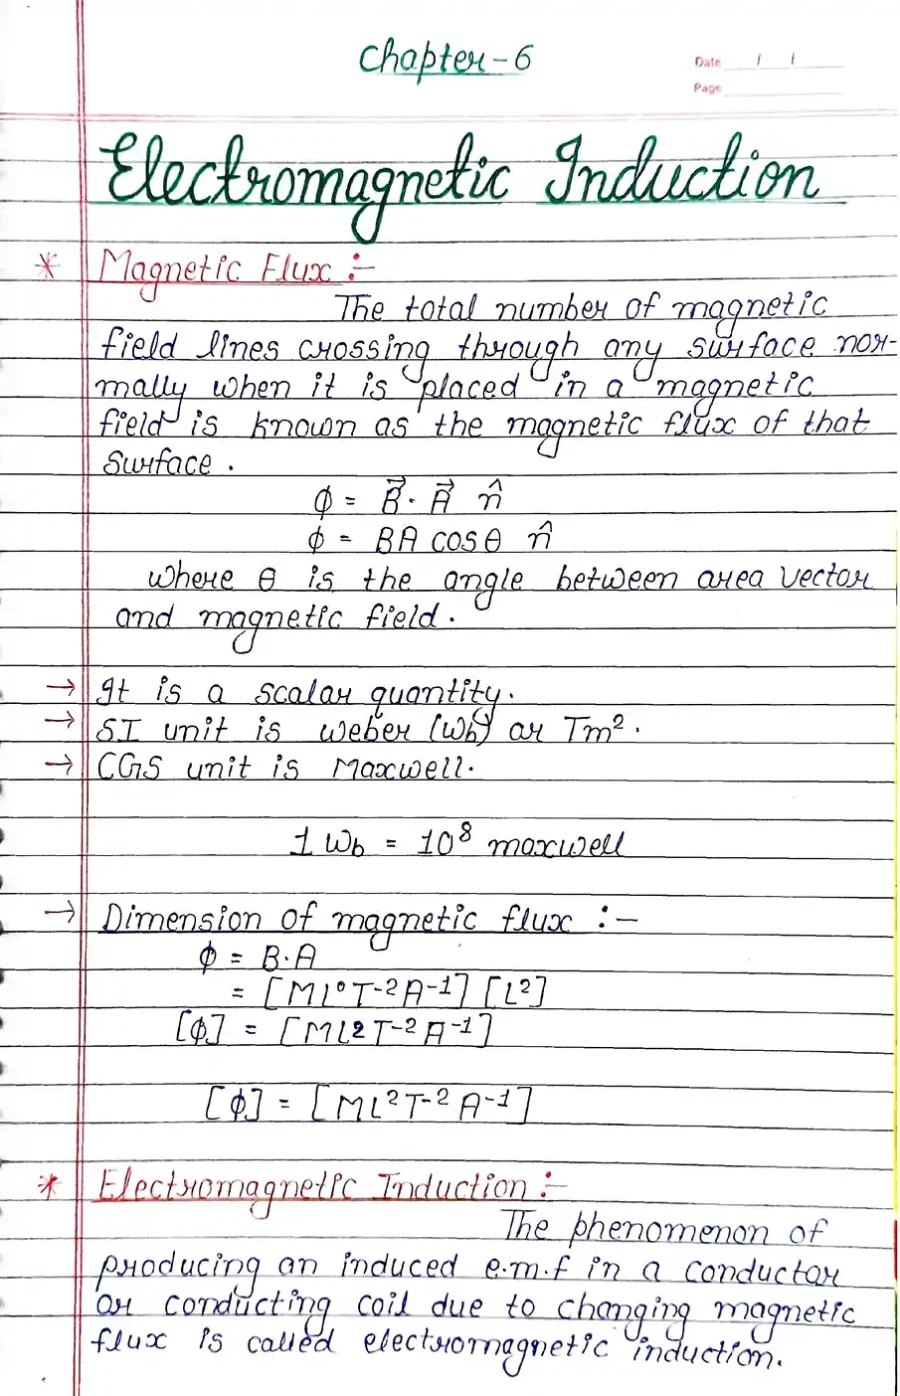 Chapter-6
Date / /
Page
Electromagnetic Induction
* Magnetic Flux :-
The total number of magnetic
field lines crossing through any surface nor-
mally when it is placed in a magnetic
field is known as the magnetic flux of that
surface.
ϕ = B⃗. A⃗ n̂
ϕ = BA cosθ n̂
where θ is the angle between area vector
and magnetic field.
→ It is a scalar quantity.
→ SI unit is weber (Wb) or Tm².
→ CGS unit is Maxwell.
1 Wb = 10⁸ maxwell
→ Dimension of magnetic flux :-
ϕ = B.A
= [ML⁰T⁻²A⁻¹] [L²]
[ϕ] = [ML²T⁻²A⁻¹]
[ϕ] = [ML²T⁻²A⁻¹]
* Electromagnetic Induction :-
The phenomenon of
producing an induced e.m.f in a conductor
or conducting coil due to changing magnetic
flux is called electromagnetic induction.